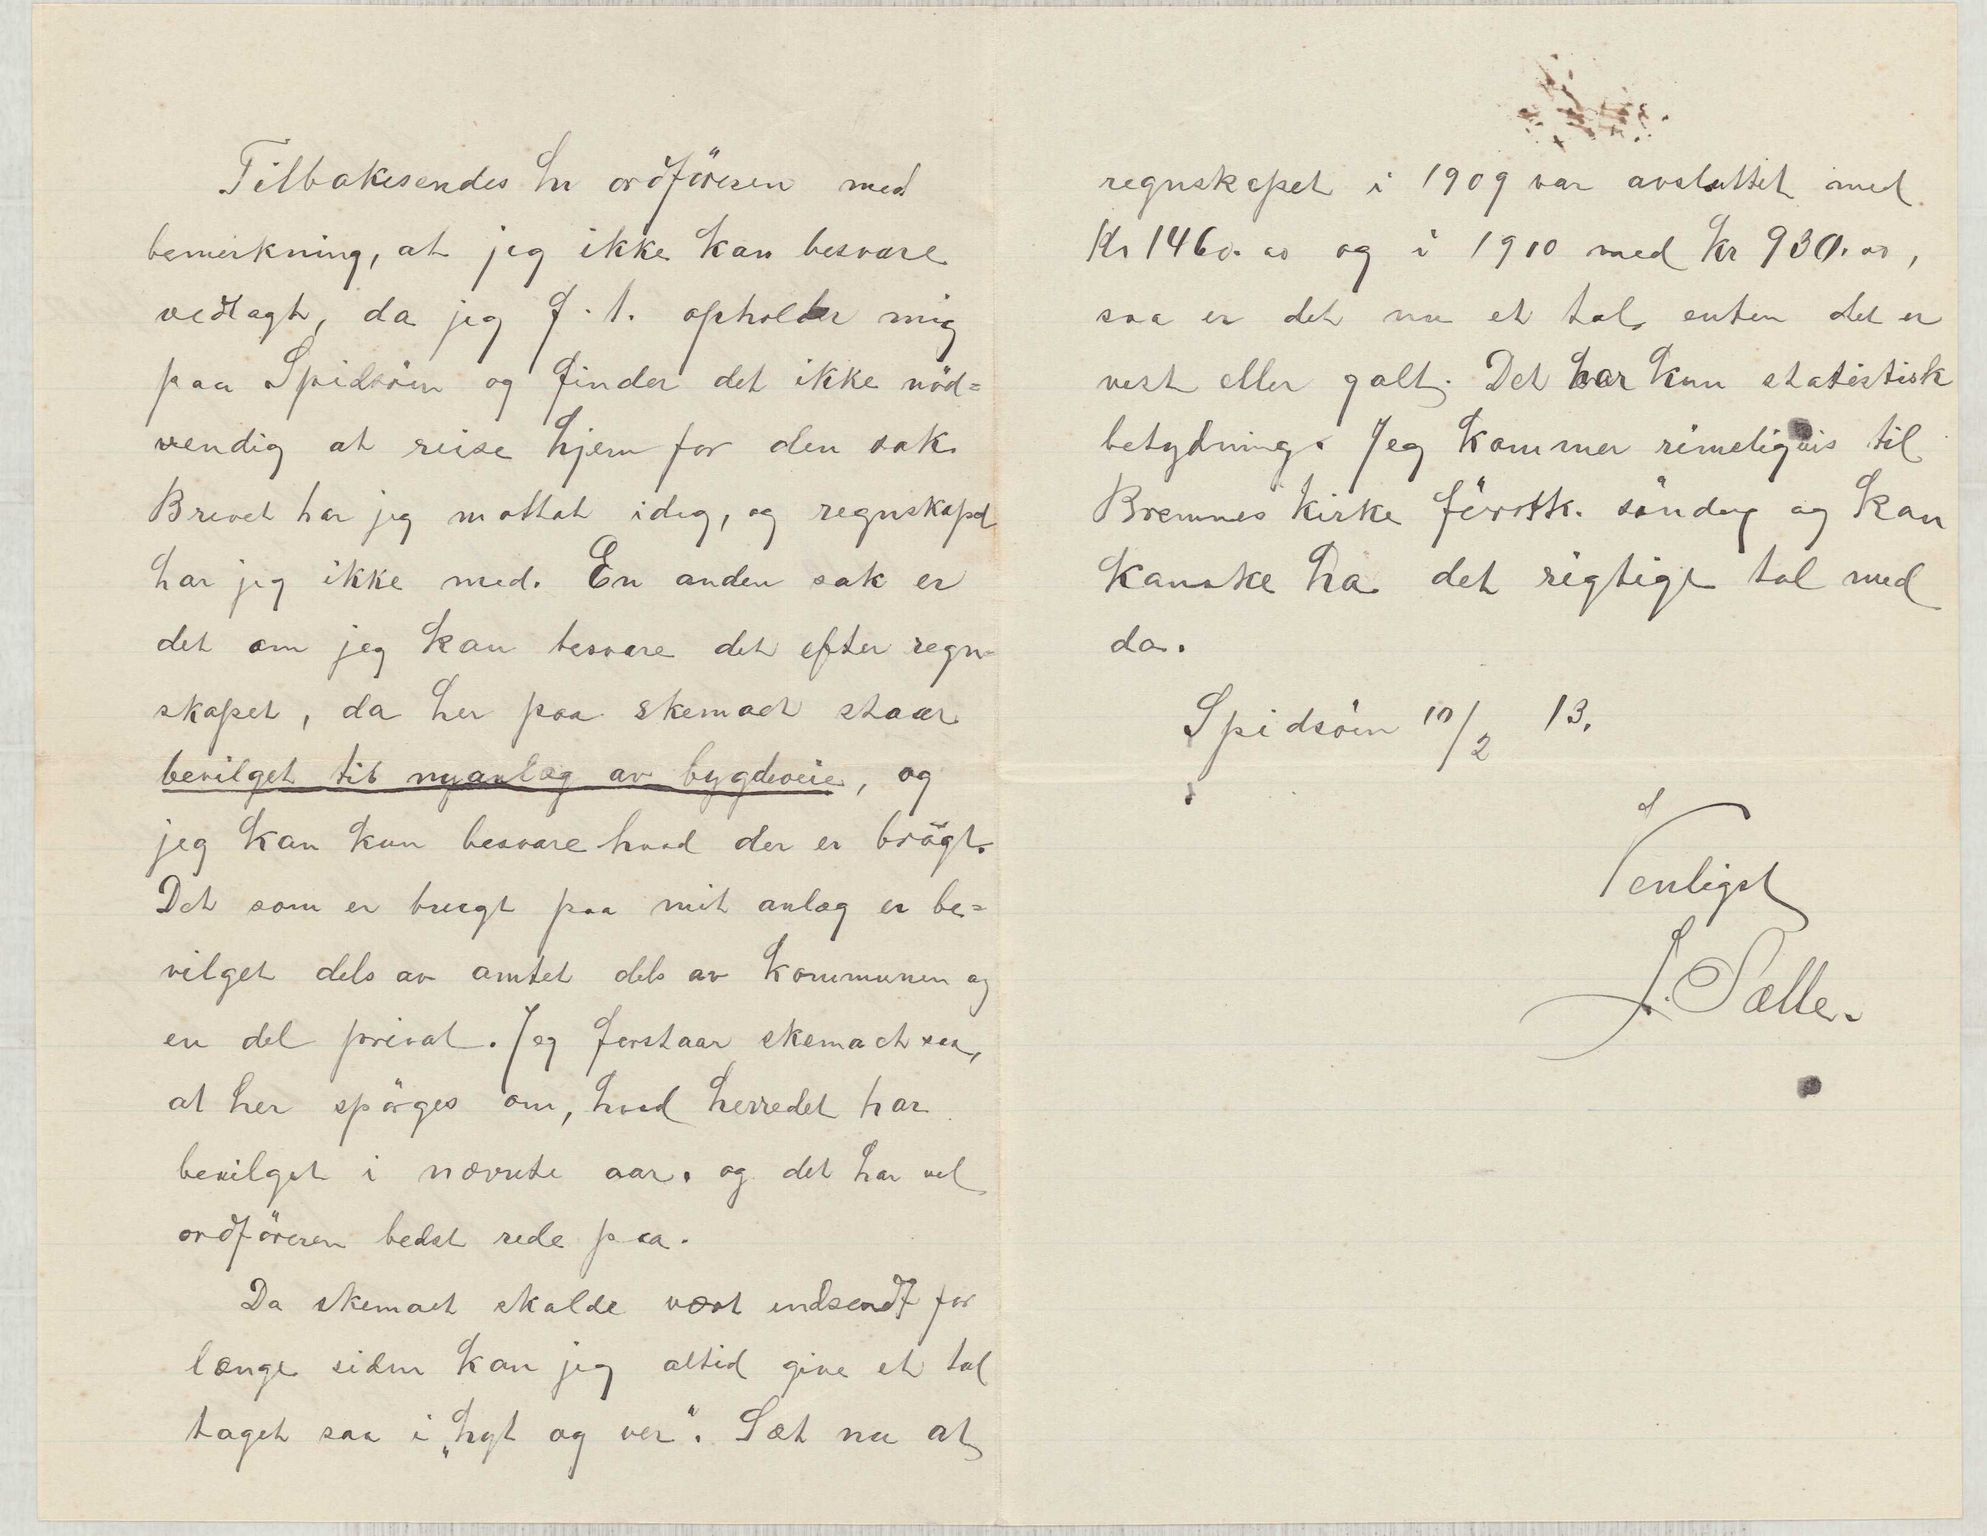 Tilbakesendes hr ordföreren med
bemerkning, at jeg ikke kan besvare
vedlagt, da jeg f. t. opholder mig
paa Spidsöen og finder det ikke nöd=
vendig at reise hjem for den sak.
Brevet har jeg mottat idag, og regnskapet
har jeg ikke med. En anden sak er
det om jeg kan besvare det efter regn-
skapet, da her paa skemaet staar
bevilget til nyanlæg av bygdeveie, og
jeg kan kun besvare hvad der er brögt.
Det som er brugt paa mit anlæg er be=
vilget dels av amtet dels av kommunen og
en del privat. Jeg forstaar skemaet saa,
at her spörges om, hvad herredet har
bevilget i nævnte aar. og det har vel
ordföreren bedst rede paa.
Da skemaet skulde vært indsendt for
længe siden kan jeg altid give et tal
taget saa i „hyt og ver“. Sæt nu at
regnskapet i 1909 var avsluttet med
Kr 1460.00 og i 1910 med kr 930.00,
saa er det nu et tal, enten det er
rest eller galt. Det har kun statistisk
betydning. Jeg kommer rimeligvis til
Bremnes kirke förstk. söndag og kan
kanske ha det rigtige tal med
da.
Spidsöen 10/2 13.
Venligst
J. Sælle.